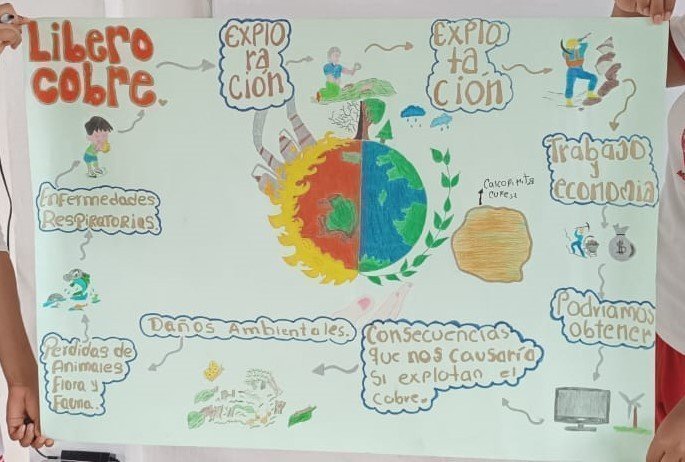 Libero
cobre
Explo
ra
ción
Explo
ta
ción
Trabajo
y
economia
Podriamos
obtener
Consecuencias
que nos causaría
si explotan el
cobre.
Daños Ambientales.
Perdidas de
Animales
Flora y
Fauna.
Enfermedades
Respiratorias
$